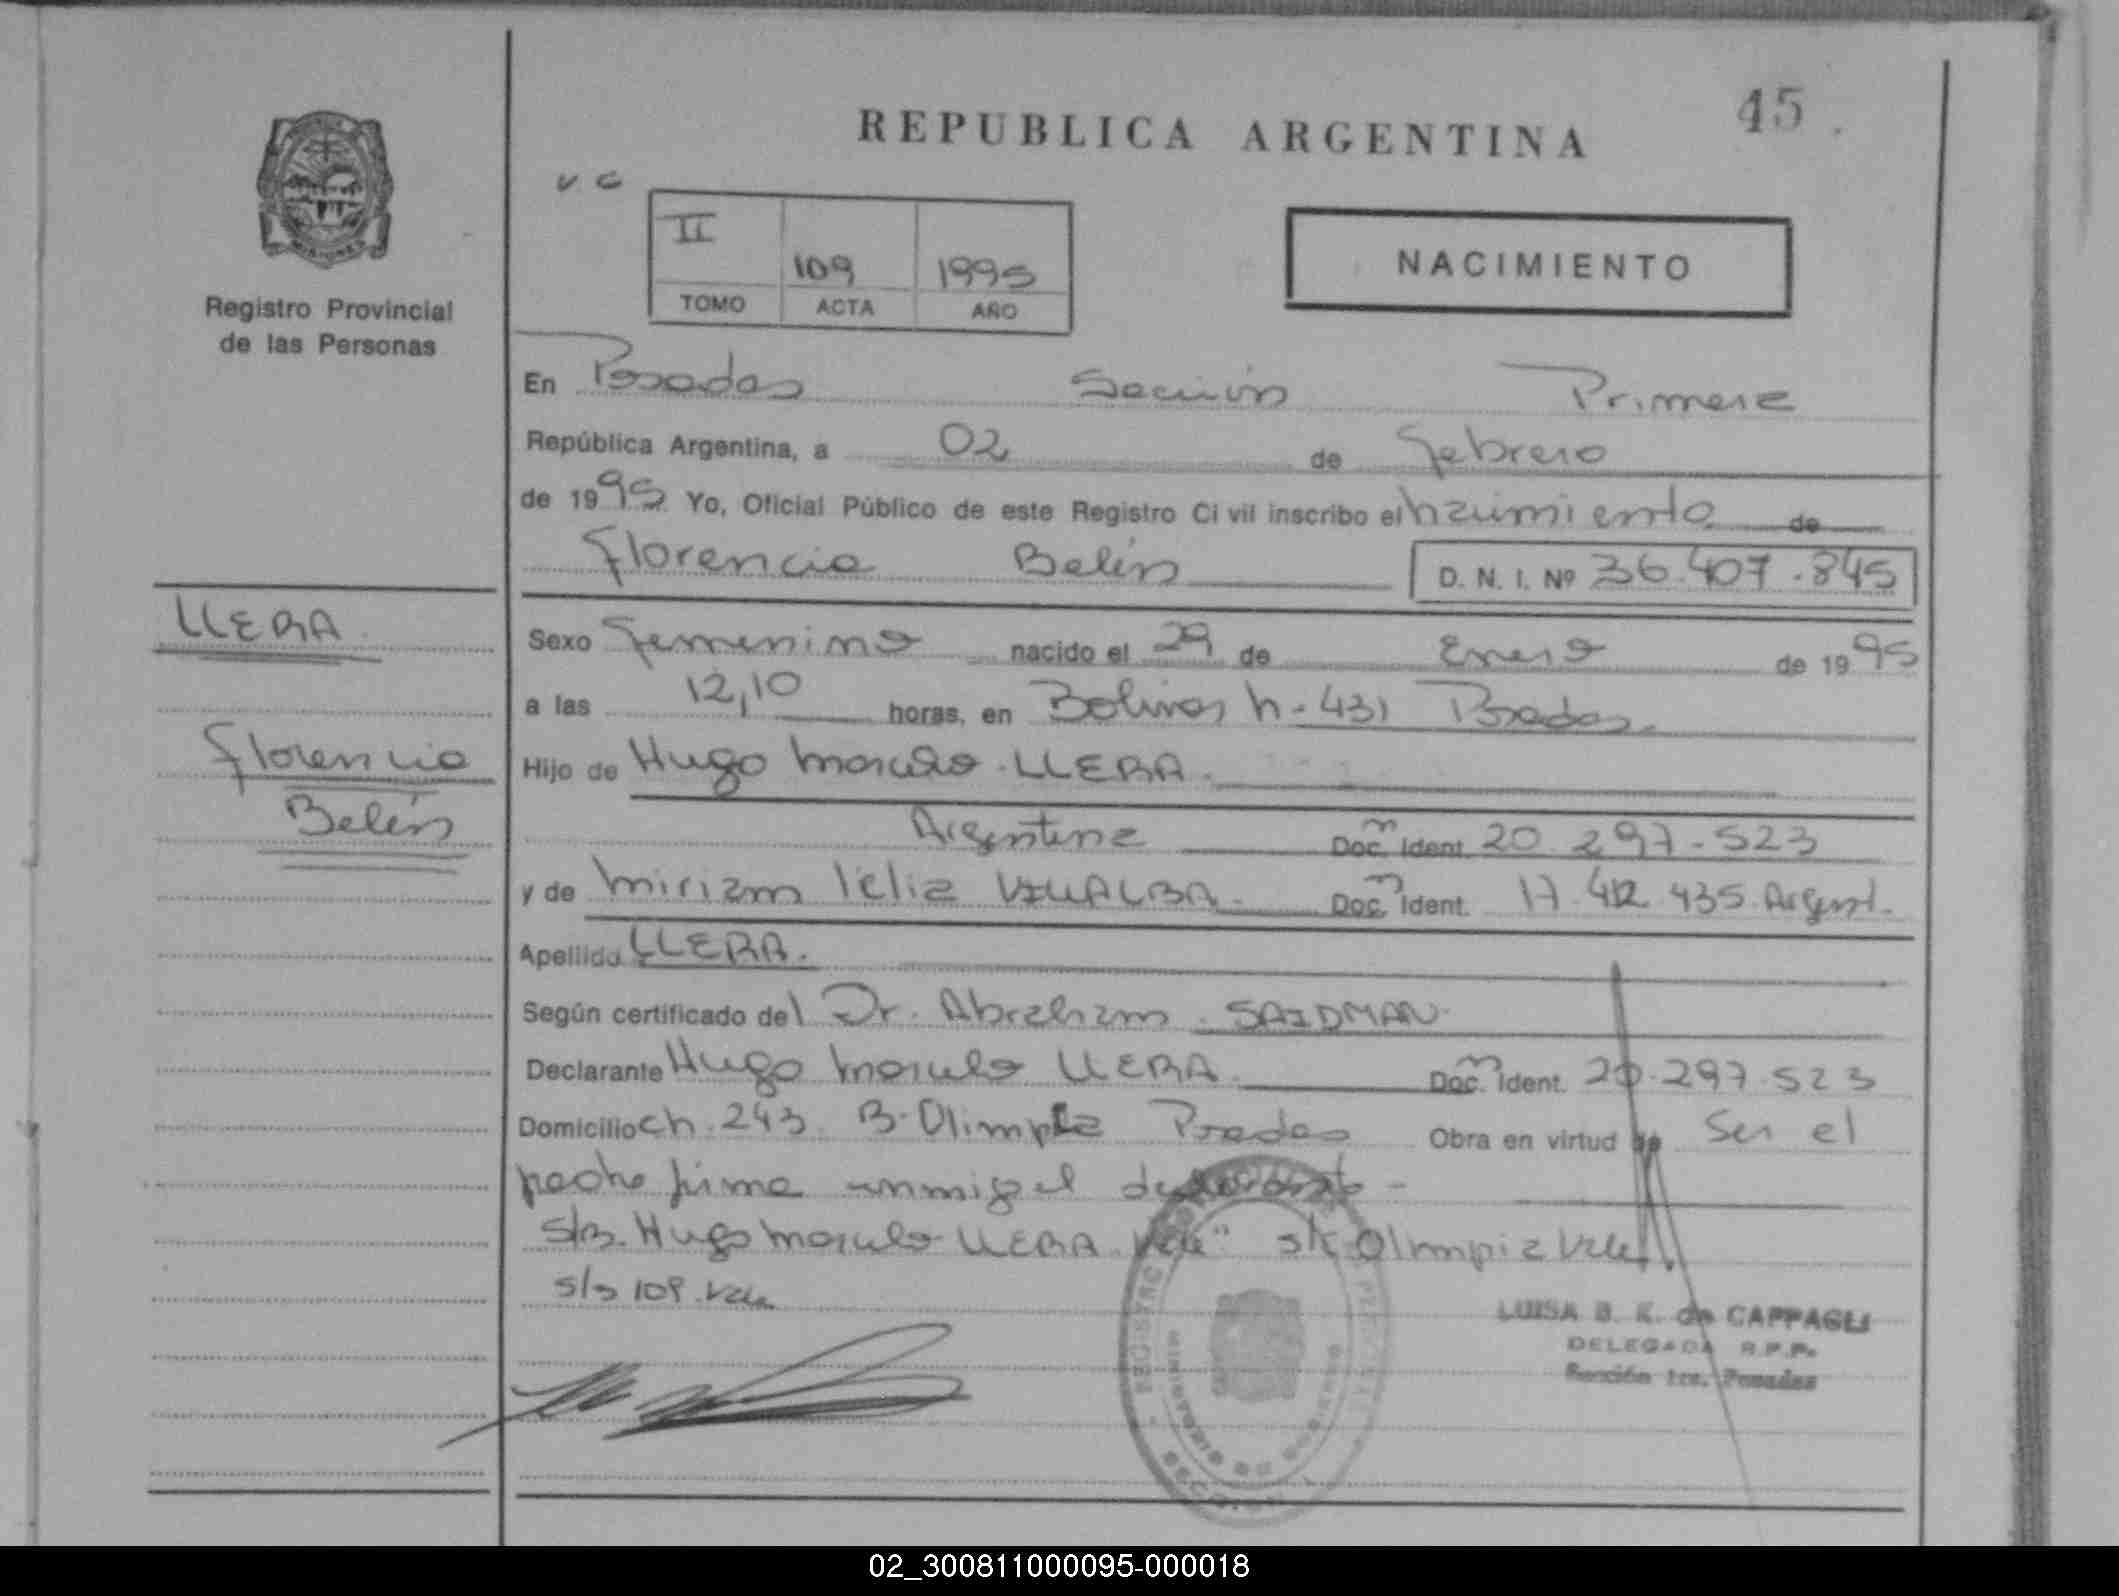 45
REPUBLICA ARGENTINA
MISIONES
Registro Provincial
de las Personas
II 109 1995
TOMO ACTA AÑO
NACIMIENTO
En Posadas Sección Primera
República Argentina, a 02 de Febrero
de 1995 Yo, Oficial Público de este Registro Civil inscribo el nacimiento de
Florencia Belén D. N. I. Nº 36.407.845
LLERA
Florencia
Belén
Sexo Femenino nacido el 29 de Enero de 1995
a las 12,10 horas, en Bolivar n. 431 Posadas.
Hijo de Hugo Marcelo LLERA.
Argentina Doc. Ident. 20.297.523
y de Miriam VILLALBA. Doc. Ident. 17.412.435 Argent.
Apellido LLERA.
Según certificado del Dr. Abraham SAIDMAN.
Declarante Hugo Marcelo LLERA. Doc. Ident. 20.297.523
Domicilio ch. 243 B. Olimpia Posadas Obra en virtud de Ser el
padre firma
Hugo Marcelo LLERA Vale" Olimpia vale
s/s 109 vale
LUISA B. K. de CAPPAGLI
DELEGADA R.P.P.
Sección 1ra. Posadas
02_300811000095-000018